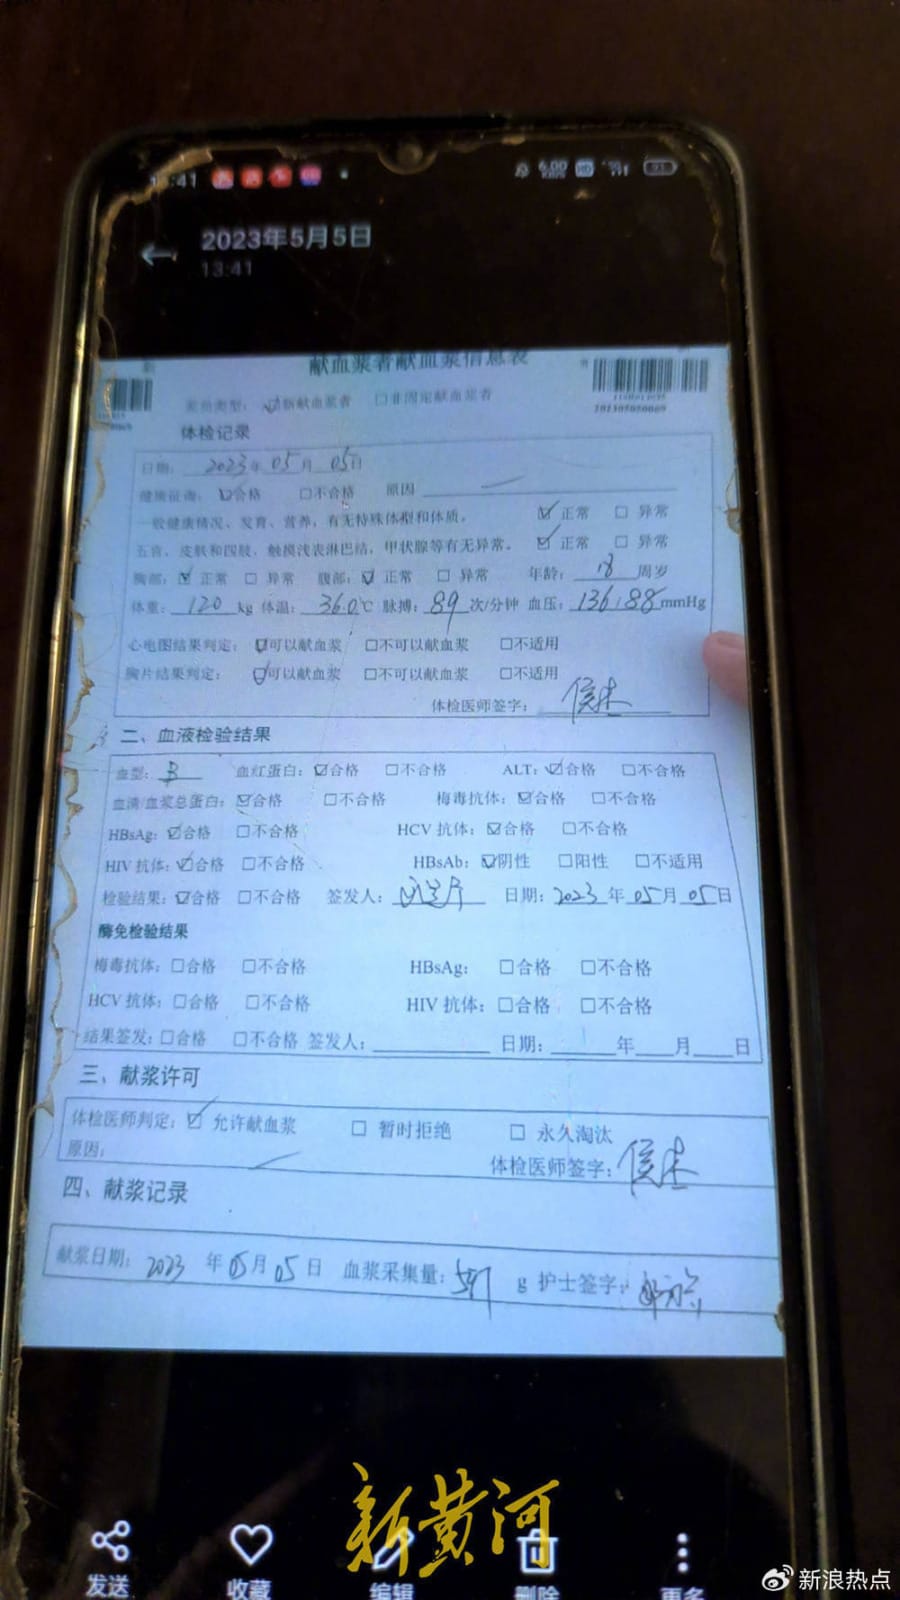 2023年5月5日
13:41
献血浆者献血浆信息表
浆员类型： ☑新献血浆者 □非固定献血浆者
体检记录
日期： 2023年 05月 05日
健康征询： ☑合格 □不合格 原因
一般健康情况、发育、营养，有无特殊体型和体质。 ☑ 正常 □ 异常
五官、皮肤和四肢、触摸浅表淋巴结，甲状腺等有无异常。 ☑ 正常 □ 异常
胸部：☑ 正常 □ 异常 腹部：☑ 正常 □ 异常 年龄： 18 周岁
体重： 120 kg 体温： 36.0℃ 脉搏： 89 次/分钟 血压： 136/88 mmHg
心电图结果判定： ☑可以献血浆 □不可以献血浆 □不适用
胸片结果判定： ☑可以献血浆 □不可以献血浆 □不适用
体检医师签字： 侯杰
二、血液检验结果
血型： B 血红蛋白：☑合格 □不合格 ALT：☑合格 □不合格
血清/血浆总蛋白：☑合格 □不合格 梅毒抗体：☑合格 □不合格
HBsAg：☑合格 □不合格 HCV 抗体：☑合格 □不合格
HIV 抗体：☑合格 □不合格 HBsAb：☑阴性 □阳性 □不适用
检验结果：☑合格 □不合格 签发人： 日期：2023 年 05 月 05 日
酶免检验结果
梅毒抗体：□合格 □不合格 HBsAg： □合格 □不合格
HCV 抗体：□合格 □不合格 HIV 抗体：□合格 □不合格
结果签发：□合格 □不合格 签发人： 日期： 年 月 日
三、献浆许可
体检医师判定：☑ 允许献血浆 □ 暂时拒绝 □ 永久淘汰
原因：
体检医师签字：侯杰
四、献浆记录
献浆日期： 2023 年 05 月 05 日 血浆采集量： g 护士签字：
新黄河
发送 收藏 编辑 删除 更多
新浪热点